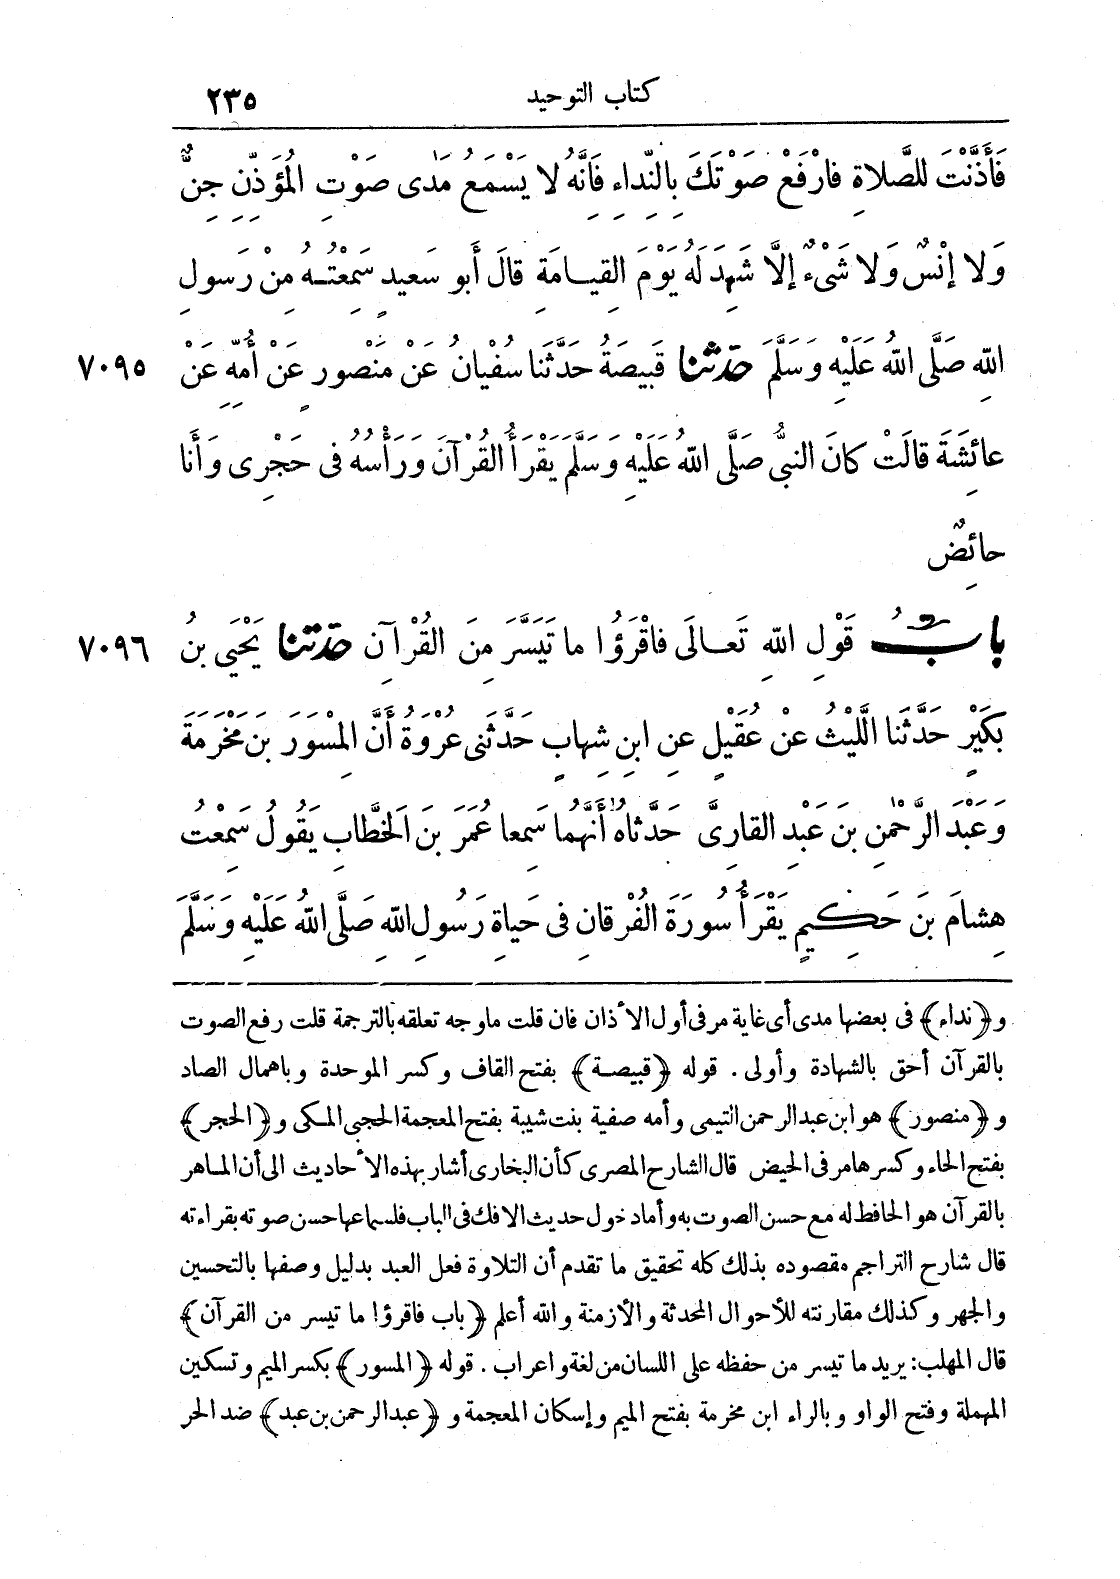 كتاب التوحيد ٢٣٥
فَأَذَّنْتَ لِلصَّلَاةِ فَارْفَعْ صَوْتَكَ بِالنِّدَاءِ فَانَّهُ لَا يَسْمَعُ مَدَى صَوْتِ الْمُؤَذِّنِ جِنٌّ
وَلَا إِنْسٌ وَلَا شَىْءٌ إِلَّا شَهِدَ لَهُ يَوْمَ الْقِيَامَةِ قَالَ أَبُو سَعِيدٍ سَمِعْتُهُ مِنْ رَسُولِ
اللهِ صَلَّى اللهُ عَلَيْهِ وَسَلَّمَ حَدَّثَنَا قَبِيصَةُ حَدَّثَنَا سُفْيَانُ عَنْ مَنْصُورٍ عَنْ أُمِّهِ عَنْ ٧٠٩٥
عَائِشَةَ قَالَتْ كَانَ النَّبِىُّ صَلَّى اللهُ عَلَيْهِ وَسَلَّمَ يَقْرَأُ الْقُرْآنَ وَرَأْسُهُ فِى حَجْرِى وَأَنَا
حَائِضٌ
بَابُ قَوْلِ اللهِ تَعَالَى فَاقْرَؤُا مَا تَيَسَّرَ مِنَ الْقُرْآنِ حَدَّثَنَا يَحْيَى بْنُ ٧٠٩٦
بُكَيْرٍ حَدَّثَنَا اللَّيْثُ عَنْ عُقَيْلٍ عَنِ ابْنِ شِهَابٍ حَدَّثَنِى عُرْوَةُ أَنَّ الْمِسْوَرَ بْنَ مَخْرَمَةَ
وَعَبْدَ الرَّحْمٰنِ بْنَ عَبْدٍ الْقَارِىَّ حَدَّثَاهُ أَنَّهُمَا سَمِعَا عُمَرَ بْنَ الْخَطَّابِ يَقُولُ سَمِعْتُ
هِشَامَ بْنَ حَكِيمٍ يَقْرَأُ سُورَةَ الْفُرْقَانِ فِى حَيَاةِ رَسُولِ اللهِ صَلَّى اللهُ عَلَيْهِ وَسَلَّمَ
و﴿نداء﴾ فى بعضها مدى أى غاية مر فى أول الأذان فان قلت ما وجه تعلقه بالترجمة قلت رفع الصوت
بالقرآن أحق بالشهادة وأولى. قوله ﴿قبيصة﴾ بفتح القاف وكسر الموحدة وباهمال الصاد
و﴿منصور﴾ هو ابن عبد الرحمن التيمى وأمه صفية بنت شيبة بفتح المعجمة الحجبى المكى و﴿الحجر﴾
بفتح الحاء وكسرها مر فى الحيض قال الشارح المصرى كأن البخارى أشار بهذه الأحاديث الى أن الماهر
بالقرآن هو الحافظ له مع حسن الصوت به وأما دخول حديث الافك فى الباب فلسماعها حسن صوته بقراءته
قال شارح التراجم مقصوده بذلك كله تحقيق ما تقدم أن التلاوة فعل العبد بدليل وصفها بالتحسين
والجهر وكذلك مقارنته للأحوال المحدثة والأزمنة والله أعلم ﴿باب فاقرؤا ما تيسر من القرآن﴾
قال المهلب: يريد ما تيسر من حفظه على اللسان من لغة واعراب. قوله ﴿المسور﴾ بكسر الميم وتسكين
المهملة وفتح الواو وبالراء ابن مخرمة بفتح الميم وإسكان المعجمة و﴿عبد الرحمن بن عبد﴾ ضد الحر